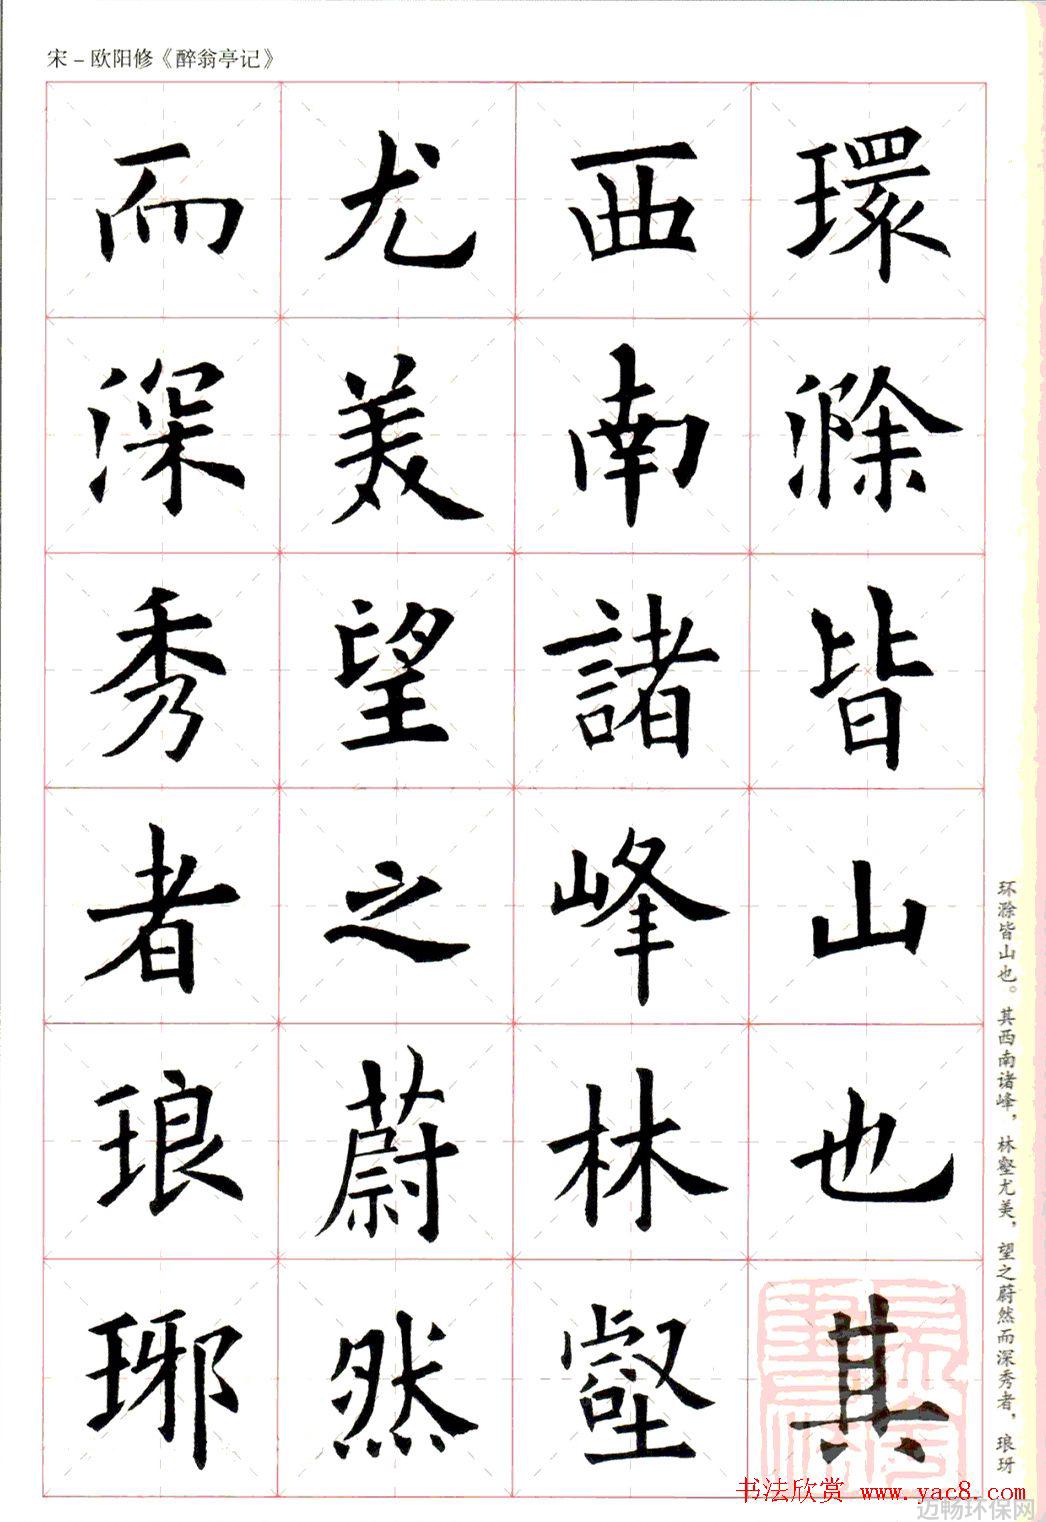 宋－欧阳修《醉翁亭记》
環滁皆山也其
西南諸峰林壑
尤美望之蔚然
而深秀者琅琊
环滁皆山也。其西南诸峰，林壑尤美，望之蔚然而深秀者，琅玡
书法欣赏 www.yac8.com
迈畅环保网